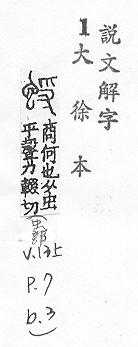 説文解字
1 大徐本
蛶
商何也从虫
寽聲力輟切
(虫部
V.13上
P.7
b.3)